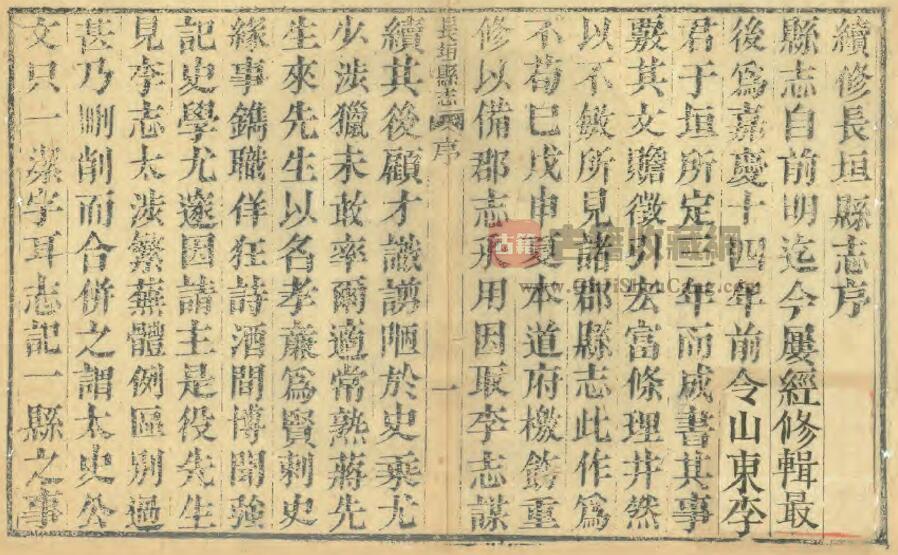 續修長垣縣志序
縣志自前明迄今屢經修輯最
後爲嘉慶十四年前令山東李
君于垣所定三年而成書其事
覈其文贍徵引宏富條理井然
以不敏所見諸郡縣志此作爲
不茍已戊申夏本道府檄飭重
修以備郡志采用因取李志謀
長垣縣志 序 一
續其後顧才識謭陋於史乘尤
少涉獵未敢率爾適常熟蔣先
生來先生以名孝廉爲賢刺史
緣事鐫職佯狂詩酒間博聞強
記史學尤邃因請主是役先生
見李志太涉繁蕪體例區別過
甚乃刪削而合併之謂太史公
文只一潔字耳志記一縣之事
古籍
古籍收藏網